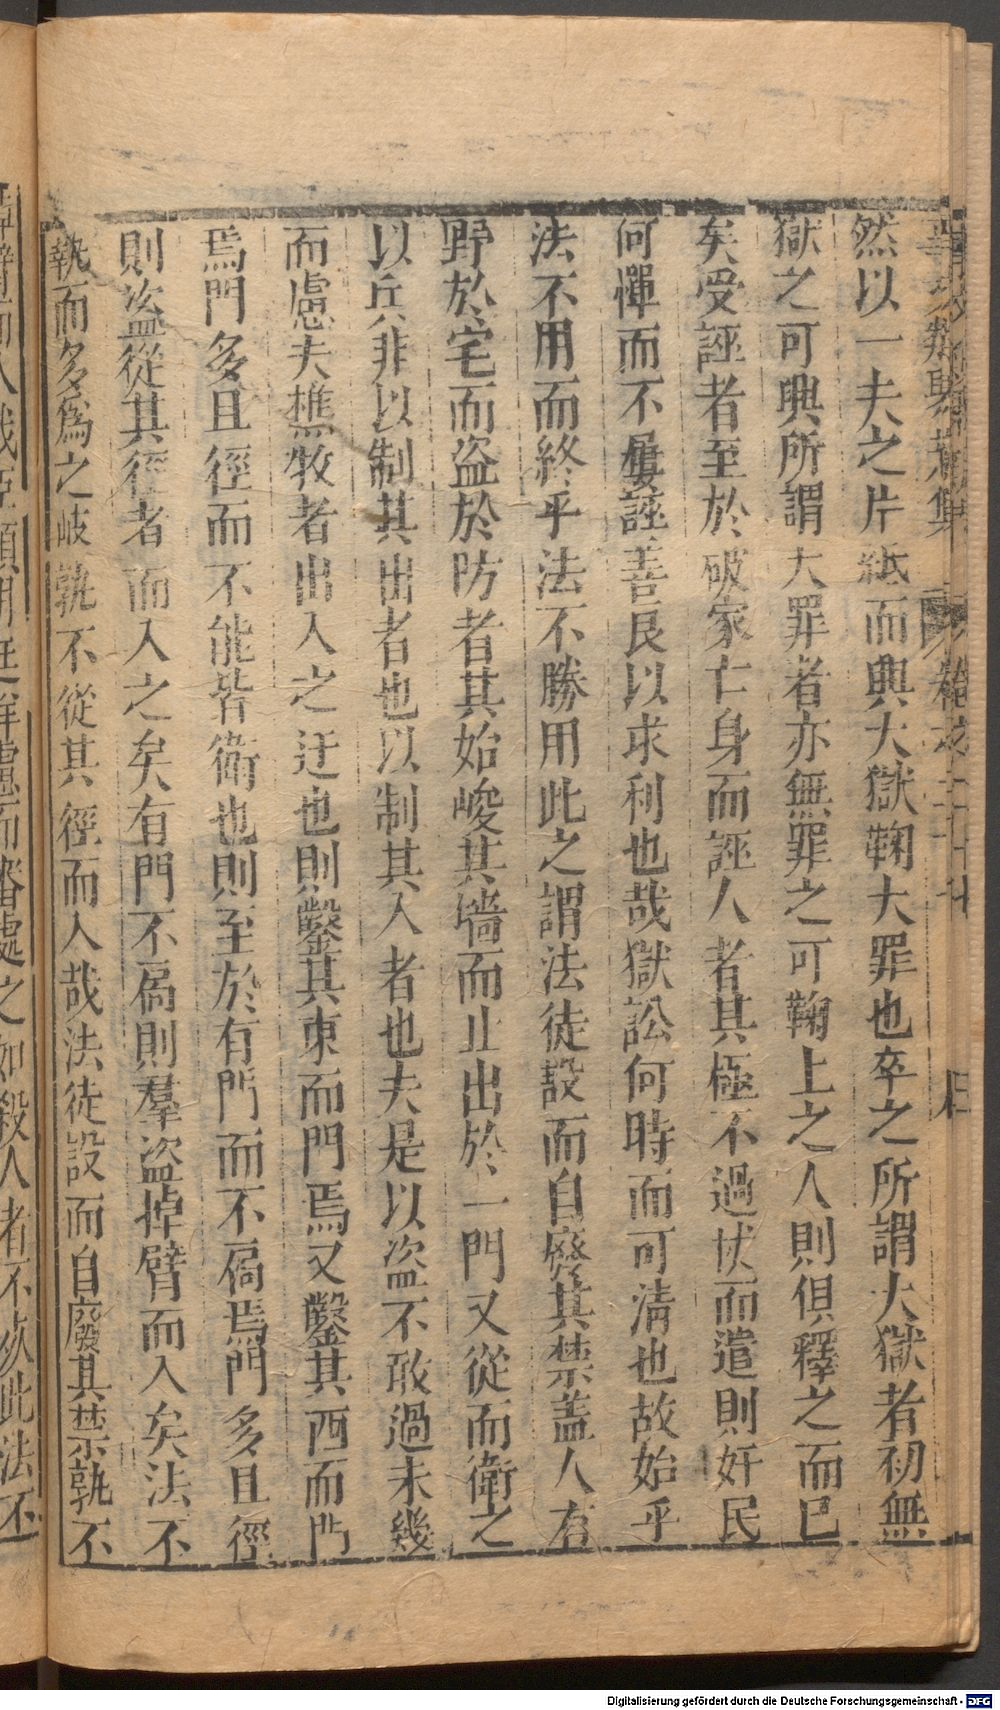 然以一夫之片紙而興大獄鞠大罪也卒之所謂大獄者初無
獄之可興所謂大罪者亦無罪之可鞠上之人則俱釋之而已
矣受誣者至於破家亡身而誣人者其極不過杖而遣則奸民
何憚而不屢誣善良以求利也哉獄訟何時而可清也故始乎
法不用而終乎法不勝用此之謂法徒設而自廢其禁盖人有
野於宅而盗於防者其始峻其墙而止出於一門又從而衛之
以兵非以制其出者也以制其入者也夫是以盗不敢過未幾
而慮夫樵牧者出入之迂也則鑿其東而門焉又鑿其西而門
焉門多且徑而不能皆衛也則至於有門而不扄焉門多且徑
則盗從其徑者而入之矣有門不扄則羣盗掉臂而入矣法不
執而多爲之岐孰不從其徑而入哉法徒設而自廢其禁孰不
Digitalisierung gefördert durch die Deutsche Forschungsgemeinschaft - DFG